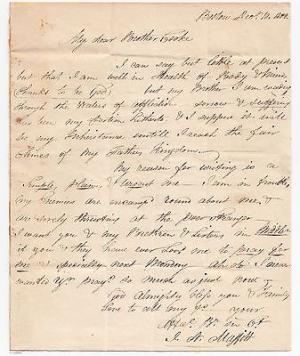 Boston Dec. 11, 18
My dear Brother Cooke
I can say but little at present
but that I am well in Health of Body & Mind,
Thanks to be God! but my Brother I am wading
through the Waters of affliction sorrow & suffering
has been my portion hitherto & I suppose it will
be my Inheritance untill I reach the fair
Shines of my Fathers Kingdom.
My reason for writing is a
simple, plain, & urgent one — I am in trouble,
my enemies are encamped round about me, &
are sorely thrusting at the poor stranger
I want you & my Brethren & Sisters in
if you & they have ever lov'd me to pray for
me & specially next Monday Oh do I never
wanted yr. prayrs. so much as just now
God Almighty bless you & Family
Love to all my frs. your
Affec. Br. in Ct
J. N. Maffitt